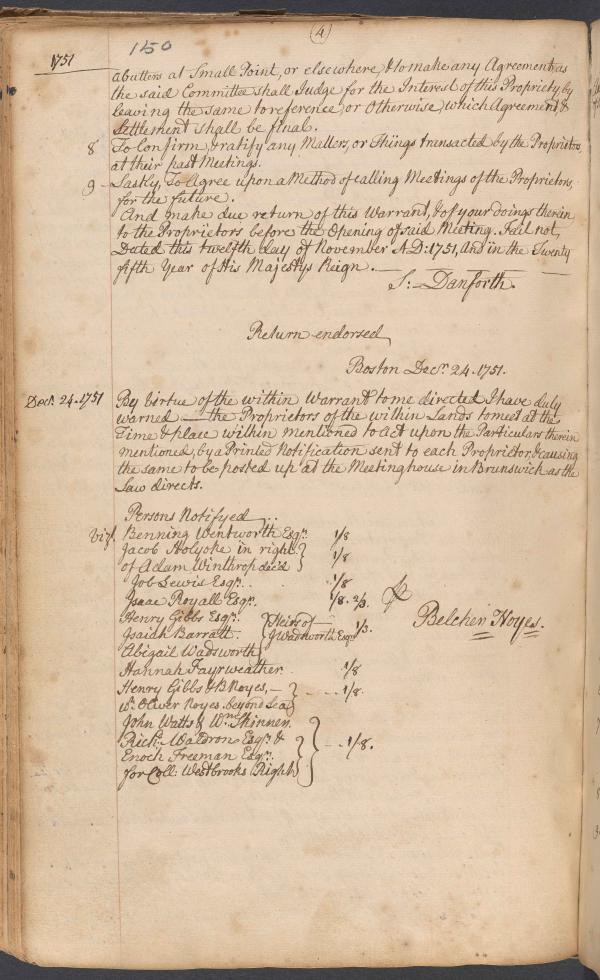 (4)
150
1751
abuttors at Small Point, or elsewhere, & to make any Agreement as
the said Committee shall Judge for the Interest of this Propriety by
leaving the same to reference, or Otherwise, which Agreement &
Settlement shall be final.
8 To Confirm, & ratify any Matters, or Things transacted by the Proprietors,
at their past Meetings.
9 Lastly, To Agree upon a Method of calling Meetings of the Proprietors,
for the future.
And make due return of this Warrant, & of your doings therein
to the Proprietors before the Opening of said Meeting. Fail not,
Dated this twelfth day of November A.D: 1751, And in the Twenty
fifth Year of His Majestys Reign.
S: Danforth.
Return endorsed
Boston Decr. 24. 1751.
Decr. 24. 1751 By Virtue of the within Warrant to me directed I have duly
warned the Proprietors of the within Lands to meet at the
Time & place within mentioned to act upon the Particulars therein
mentioned, by a Printed Notification sent to each Proprietor, & causing
the same to be posted up at the Meetinghouse in Brunswick as the
Law directs.
Persons Notifyed
vizt. Benning Wentworth Esqr. 1/8
Jacob Holyoke in right
of Adam Winthrop dec'd } 1/8
Job Lewis Esqr. 1/8
Isaac Royall Esqr. 1/8. 2/3.
Henry Gibbs Esqr.
Isaiah Barratt.
Abigail Wadsworth { Heirs of J Wadsworth Esqr 1/3.
Belcher Noyes.
Hannah Fayrweather. 1/8
Henry Gibbs & B Noyes,
wt. Oliver Noyes. beyond Sea } 1/8.
John Watts & Wm. Skinner.
Richd. Waldron Esqr. &
Enoch Freeman Esqr.
for Coll: Westbrooks Right } 1/8.